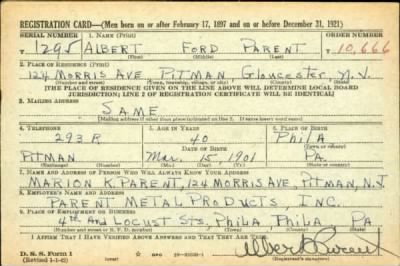 REGISTRATION CARD—(Men born on or after February 17, 1897 and on or before December 31, 1921)
SERIAL NUMBER 1. NAME (Print) ORDER NUMBER
T 1295 ALBERT FORD PARENT T 10,666
(First) (Middle) (Last)
2. PLACE OF RESIDENCE (Print)
124 MORRIS AVE PITMAN Gloucester, N.J.
(Number and street) (Town, township, village, or city) (County) (State)
[THE PLACE OF RESIDENCE GIVEN ON THE LINE ABOVE WILL DETERMINE LOCAL BOARD
JURISDICTION; LINE 2 OF REGISTRATION CERTIFICATE WILL BE IDENTICAL]
3. MAILING ADDRESS
SAME
[Mailing address if other than place indicated on line 2. If same insert word same]
4. TELEPHONE 5. AGE IN YEARS 6. PLACE OF BIRTH
293 R 40 PHILA
DATE OF BIRTH (Town or county)
PITMAN Mar. 15 1901 PA.
(Exchange) (Number) (Mo.) (Day) (Yr.) (State or country)
7. NAME AND ADDRESS OF PERSON WHO WILL ALWAYS KNOW YOUR ADDRESS
MARION K. PARENT, 124 MORRIS AVE, PITMAN, N.J.
8. EMPLOYER'S NAME AND ADDRESS
PARENT METAL PRODUCTS, INC.
9. PLACE OF EMPLOYMENT OR BUSINESS
4th AND LOCUST STS, PHILA, PHILA PA
(Number and street or R. F. D. number) (Town) (County) (State)
I AFFIRM THAT I HAVE VERIFIED ABOVE ANSWERS AND THAT THEY ARE TRUE.
D. S. S. Form 1
(Revised 1-1-42) GPO
Albert F Parent